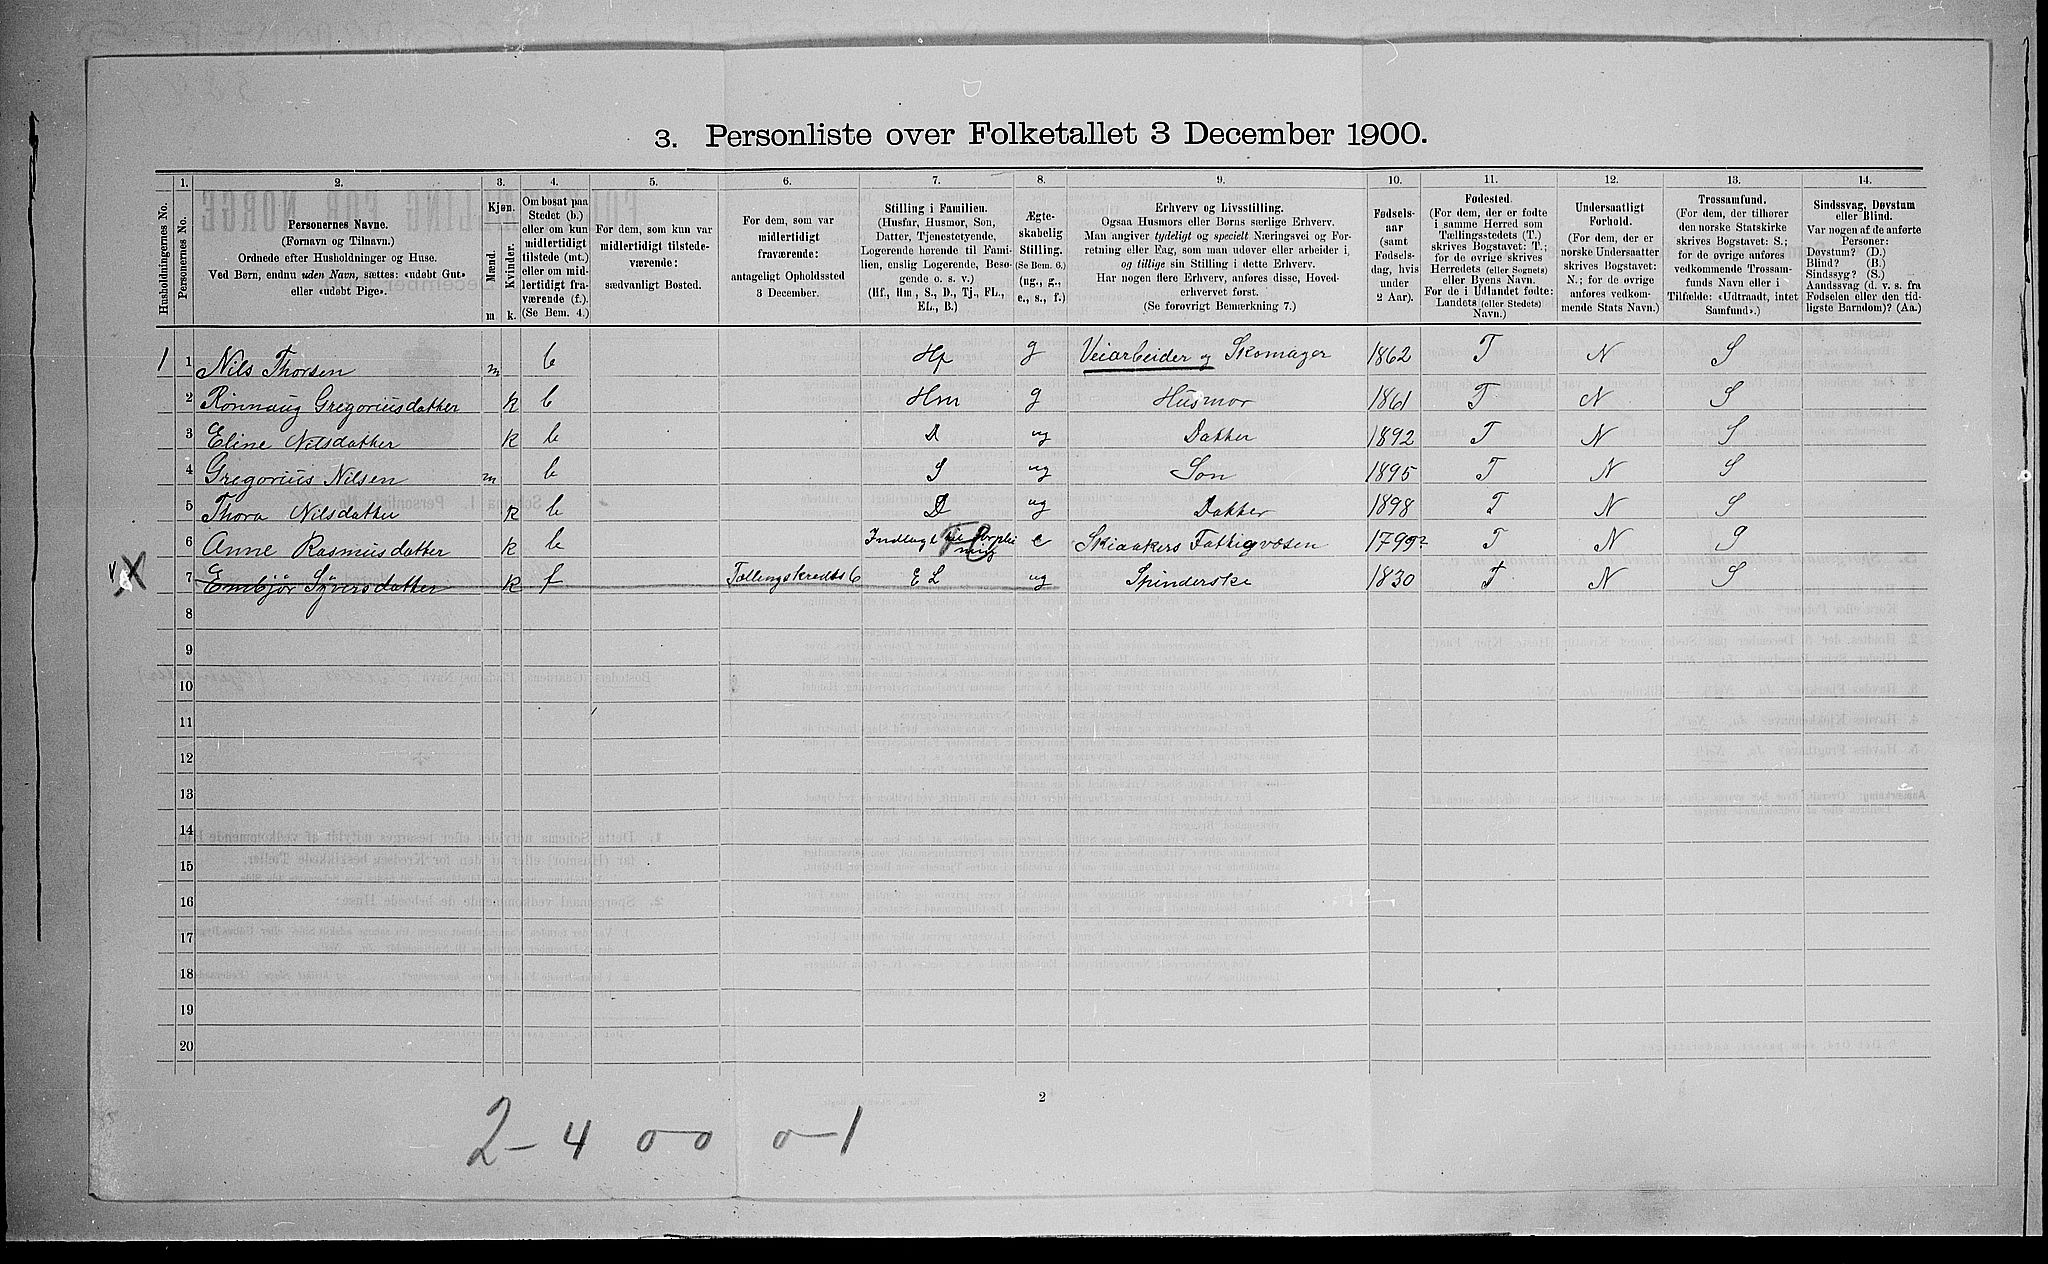 3. Personliste over Folketallet 3 December 1900.
Husholdningernes No.
1.
Personernes No.
2.
Personernes Navne.
(Fornavn og Tilnavn.)
Ordnede efter Husholdninger og Huse.
Ved Børn, endnu uden Navn, sættes: «udøbt Gut»
eller «udøbt Pige».
3.
Kjøn.
Mænd.
Kvinder.
m
k.
4.
Om bosat paa
Stedet (b.)
eller om kun
midlertidigt
tilstede (mt.)
eller om mid-
lertidigt fra-
værende (f.).
(Se Bem. 4.)
5.
For dem, som kun var
midlertidigt tilstede-
værende:
sædvanligt Bosted.
6.
For dem, som var
midlertidigt
fraværende:
antageligt Opholdssted
3 December.
7.
Stilling i Familien.
(Husfar, Husmor, Søn,
Datter, Tjenestetyende,
Logerende hørende til Fami-
lien, enslig Logerende, Besø-
gende o. s. v.)
(Hf., Hm., S., D., Tj., FL.,
EL., B.)
8.
Ægte-
skabelig
Stilling.
(Se Bem. 6.)
(ug., g.,
e., s., f.)
9.
Erhverv og Livsstilling.
Ogsaa Husmors eller Børns særlige Erhverv.
Man angiver tydeligt og specielt Næringsvei og For-
retning eller Fag, som man udøver eller arbeider i,
og tillige sin Stilling i dette Erhverv.
Har nogen flere Erhverv, anføres disse, Hoved-
erhvervet først.
(Se forøvrigt Bemærkning 7.)
10.
Fødsels-
aar
(samt
Fødsels-
dag, hvis
under
2 Aar).
11.
Fødested.
(For dem, der er fødte
i samme Herred som
Tællingsstedets (T.)
skrives Bogstavet: T.;
for de øvrige skrives
Herredets (eller Sognets)
eller Byens Navn.
For de i Udlandet fødte:
Landets (eller Stedets)
Navn.)
12.
Undersaatligt
Forhold.
(For dem, der er
norske Undersaatter
skrives Bogstavet:
N.; for de øvrige
anføres vedkom-
mende Stats Navn.)
13.
Trossamfund.
(For dem, der tilhører
den norske Statskirke
skrives Bogstavet: S.;
for de øvrige anføres
vedkommende Trossam-
funds Navn eller i
Tilfælde: «Udtraadt, intet
Samfund».)
14.
Sindssvag, Døvstum
eller Blind.
Var nogen af de anførte
Personer:
Døvstum? (D.)
Blind? (B.)
Sindssyg? (S.)
Aandssvag (d. v. s. fra
Fødselen eller den tid-
ligste Barndom)? (Aa.)
1 1 Nils Thorsen m b Hf g Veiarbeider og Skomager 1862 T N S
2 Rønnaug Gregoriusdatter k b Hm g Husmor 1861 T N S
3 Eline Nilsdatter k b D ug Datter 1892 T N S
4 Gregorius Nilsen m b S ug Søn 1895 T N S
5 Thora Nilsdatter k b D ug Datter 1898 T N S
6 Anne Rasmusdatter k b Indlagt e Skiaakers Fattigvæsen T N S
X 7 Embjør Syversdatter k f Tællingskreds 6 E L ug Spinderske 1830 T N S
8
9
10
11
12
13
14
15
16
17
18
19
20
2
2-4 0-0 0-1